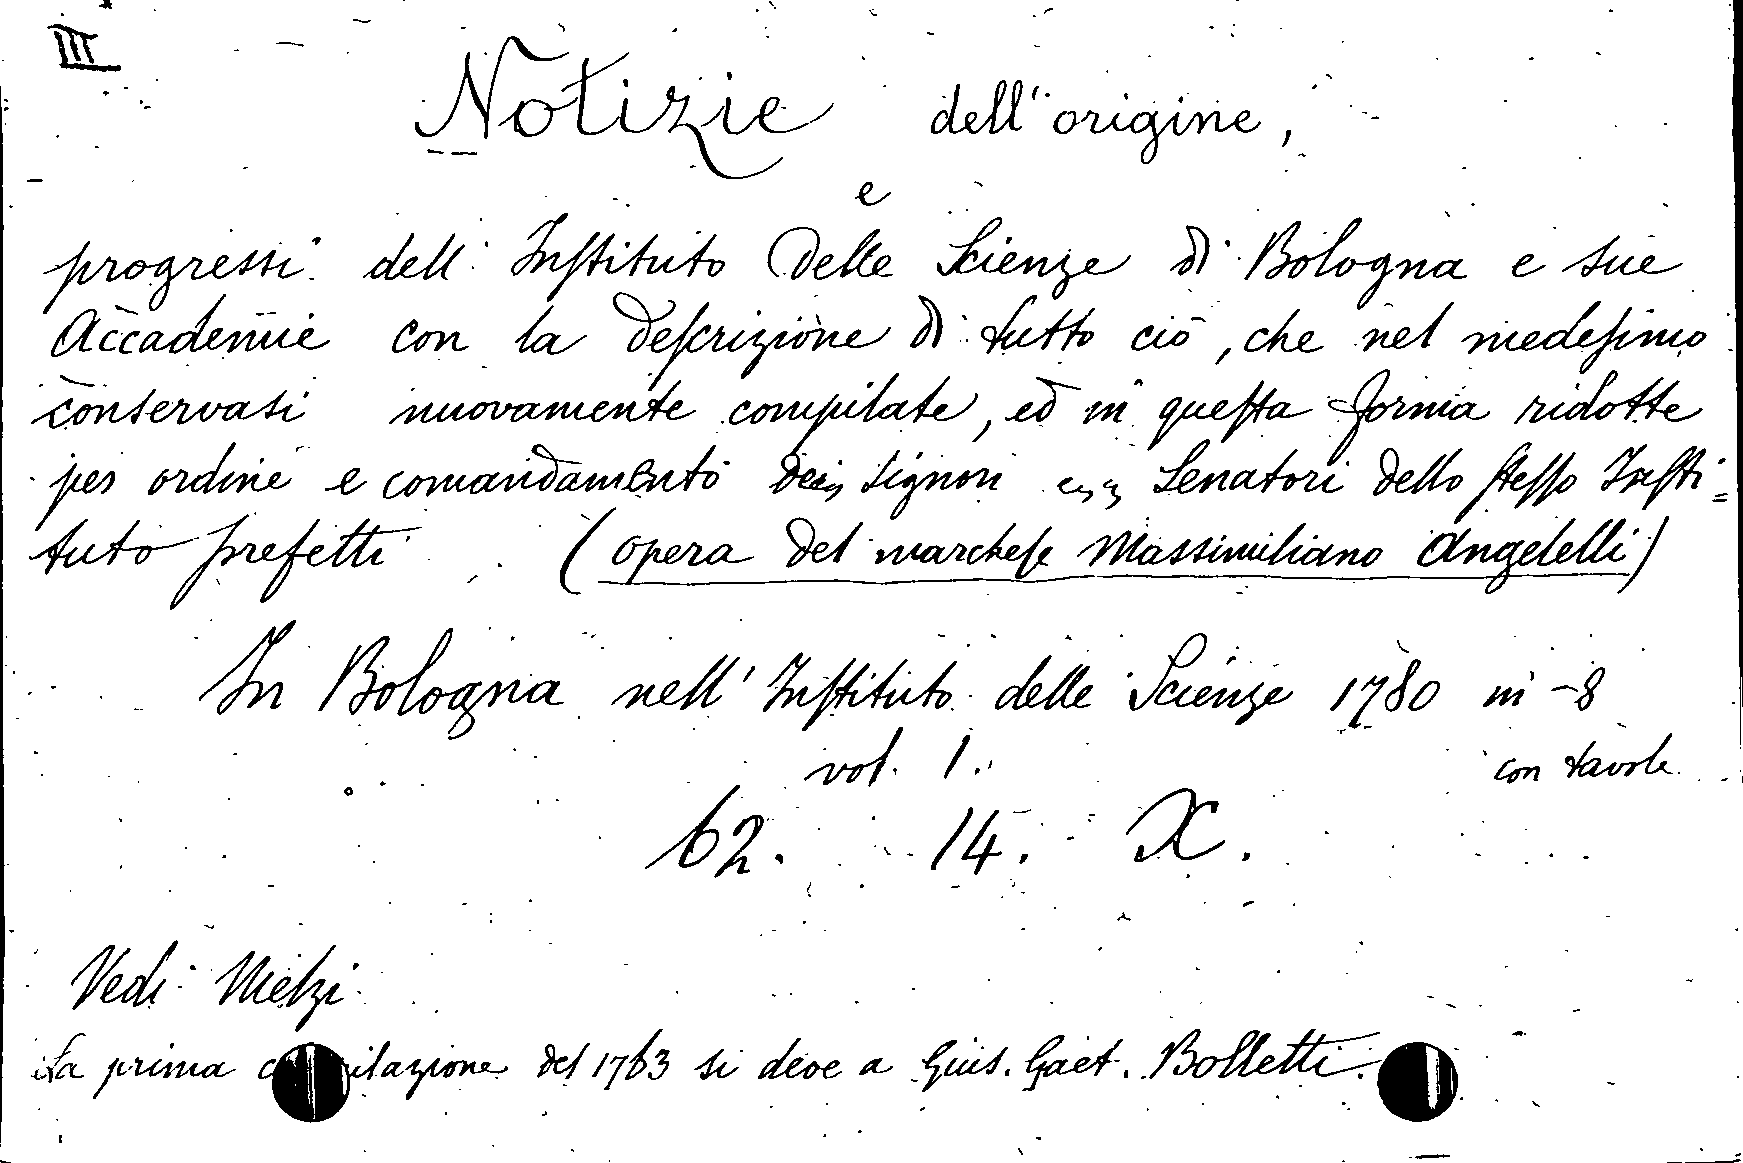 III
Notizie dell'origine,
e
progressi dell'Inſtituto delle Scienze di Bologna e sue
Accademie con la deſcrizione di tutto ciò, che nel medeſimo
conservasi nuovamente compilate, ed in queſta forma ridotte
per ordine e comandamento dei signori Senatori dello ſteſſo Inſti=
tuto prefetti (opera del marcheſe Massimiliano Angelelli)
In Bologna nell'Inſtituto delle Scienze 1780 in-8
vol. 1. con tavole
62. 14. X.
Vedi Melzi
La prima compilazione del 1763 si deve a Gius. Gaet. Bolletti.